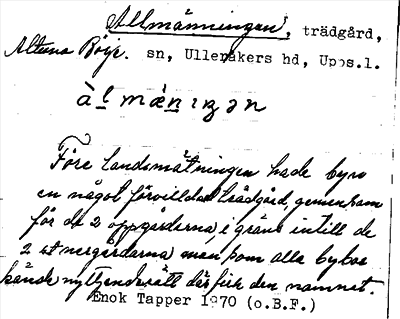 Allmänningen, trädgård,
Altuna Börje. sn, Ulleråkers hd, Upps.l.
àl mä̀nıŋən
Före landsmätningen hade byn
en något förvildad trädgård, gemensam
för de 2 oppgårdarna, i gräns intill de
2 st nergårdarna men som alla bybor
hände nyttjanderätt därfick den namnet.
Enok Tapper 1970 (o.B.F.)